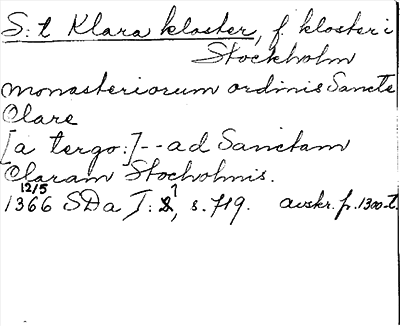 S:t Klara kloster, f. kloster i
Stockholm
monasteriorum ordinis Sancte
Clare
[a tergo:]--ad Sanctam
Claram Stocholmis.
12/5
1366 SDa I: 1, s. 719. avskr. p. 1300-t.